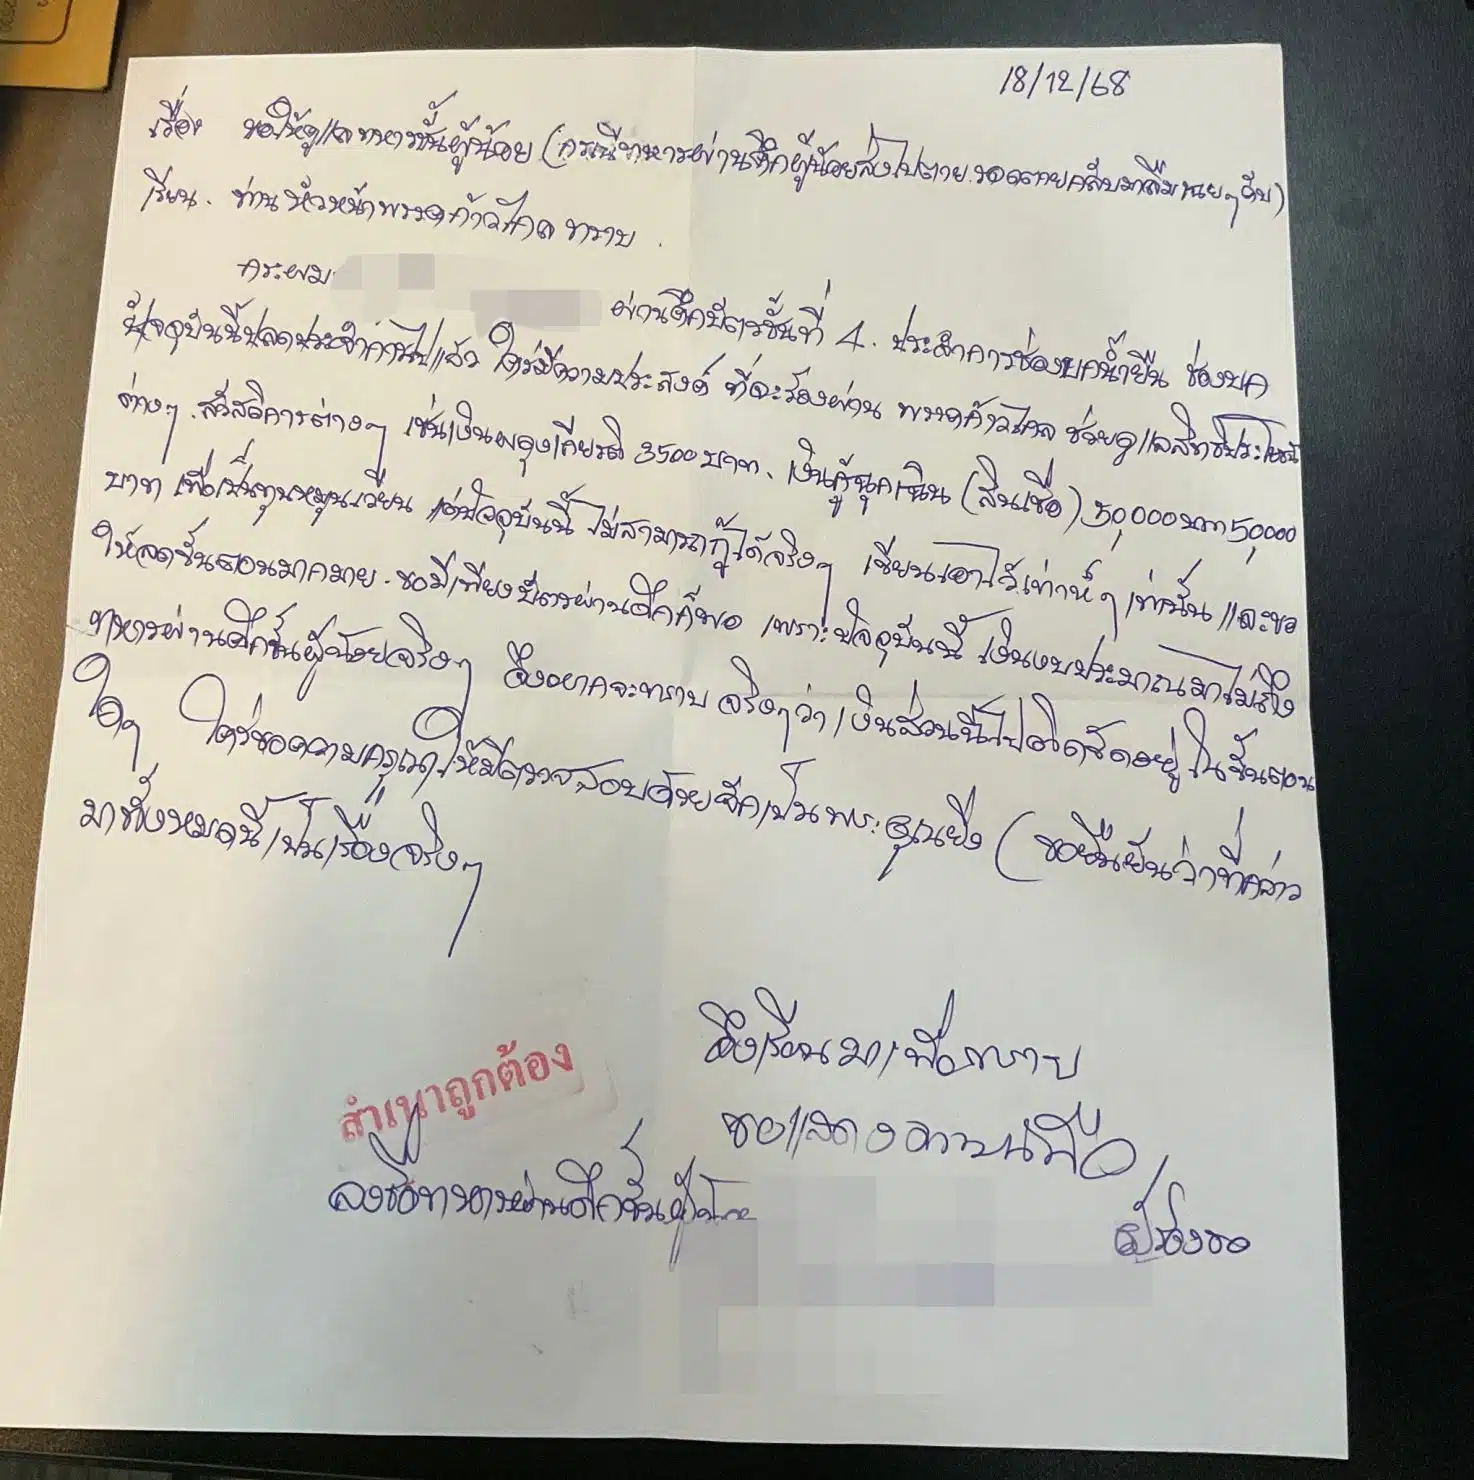 18/12/68
เรื่อง ขอให้ดูแลทหารชั้นผู้น้อย (กรณีทหารผ่านศึกผู้น้อยส่งไปตาย รอดตายกลับมาลืมเฉยๆครับ)
เรียน. ท่านหัวหน้าพรรคก้าวไกล ทราบ.
กระผม ผ่านศึกบัตรชั้นที่ 4. ประจำการช่องบกน้ำยืน ช่องบก
ปัจจุบันนี้ปลดประจำการไปแล้ว ใคร่มีความประสงค์ ที่จะร้องผ่าน พรรคก้าวไกล ช่วยดูแลสิทธิประโยชน์
ต่างๆ. สวัสดิการต่างๆ เช่นเงินผดุงเกียรติ 3500 บาท. เงินกู้ฉุกเฉิน (สินเชื่อ) 50,000 บาท 50,000
บาท เพื่อเป็นทุนหมุนเวียน แต่ปัจจุบันนี้ ไม่สามารถกู้ได้จริงๆ เขียนเอาไว้เท่ห์ๆ เท่านั้น และขอ
ให้ลดขั้นตอนมากมาย. ขอมีเพียงบัตรผ่านศึกก็พอ เพราะปัจจุบันนี้ เงินงบประมาณมาไม่ถึง
ทหารผ่านศึกชั้นผู้น้อยจริงๆ จึงอยากจะทราบ จริงๆว่า เงินส่วนนี้ไปติดขัดอยู่ ในขั้นตอน
ใดๆ ใคร่ขอความกรุณาให้มีตรวจสอบด้วยจักเป็นพระคุณยิ่ง (ขอยืนยันว่าที่กล่าว
มาทั้งหมดนี้เป็นเรื่องจริงๆ
จึงเรียนมาเพื่อทราบ
ขอแสดงความนับถือ
สำเนาถูกต้อง
ลงชื่อทหารผ่านศึกชั้นผู้น้อย
ผู้ร้องขอ